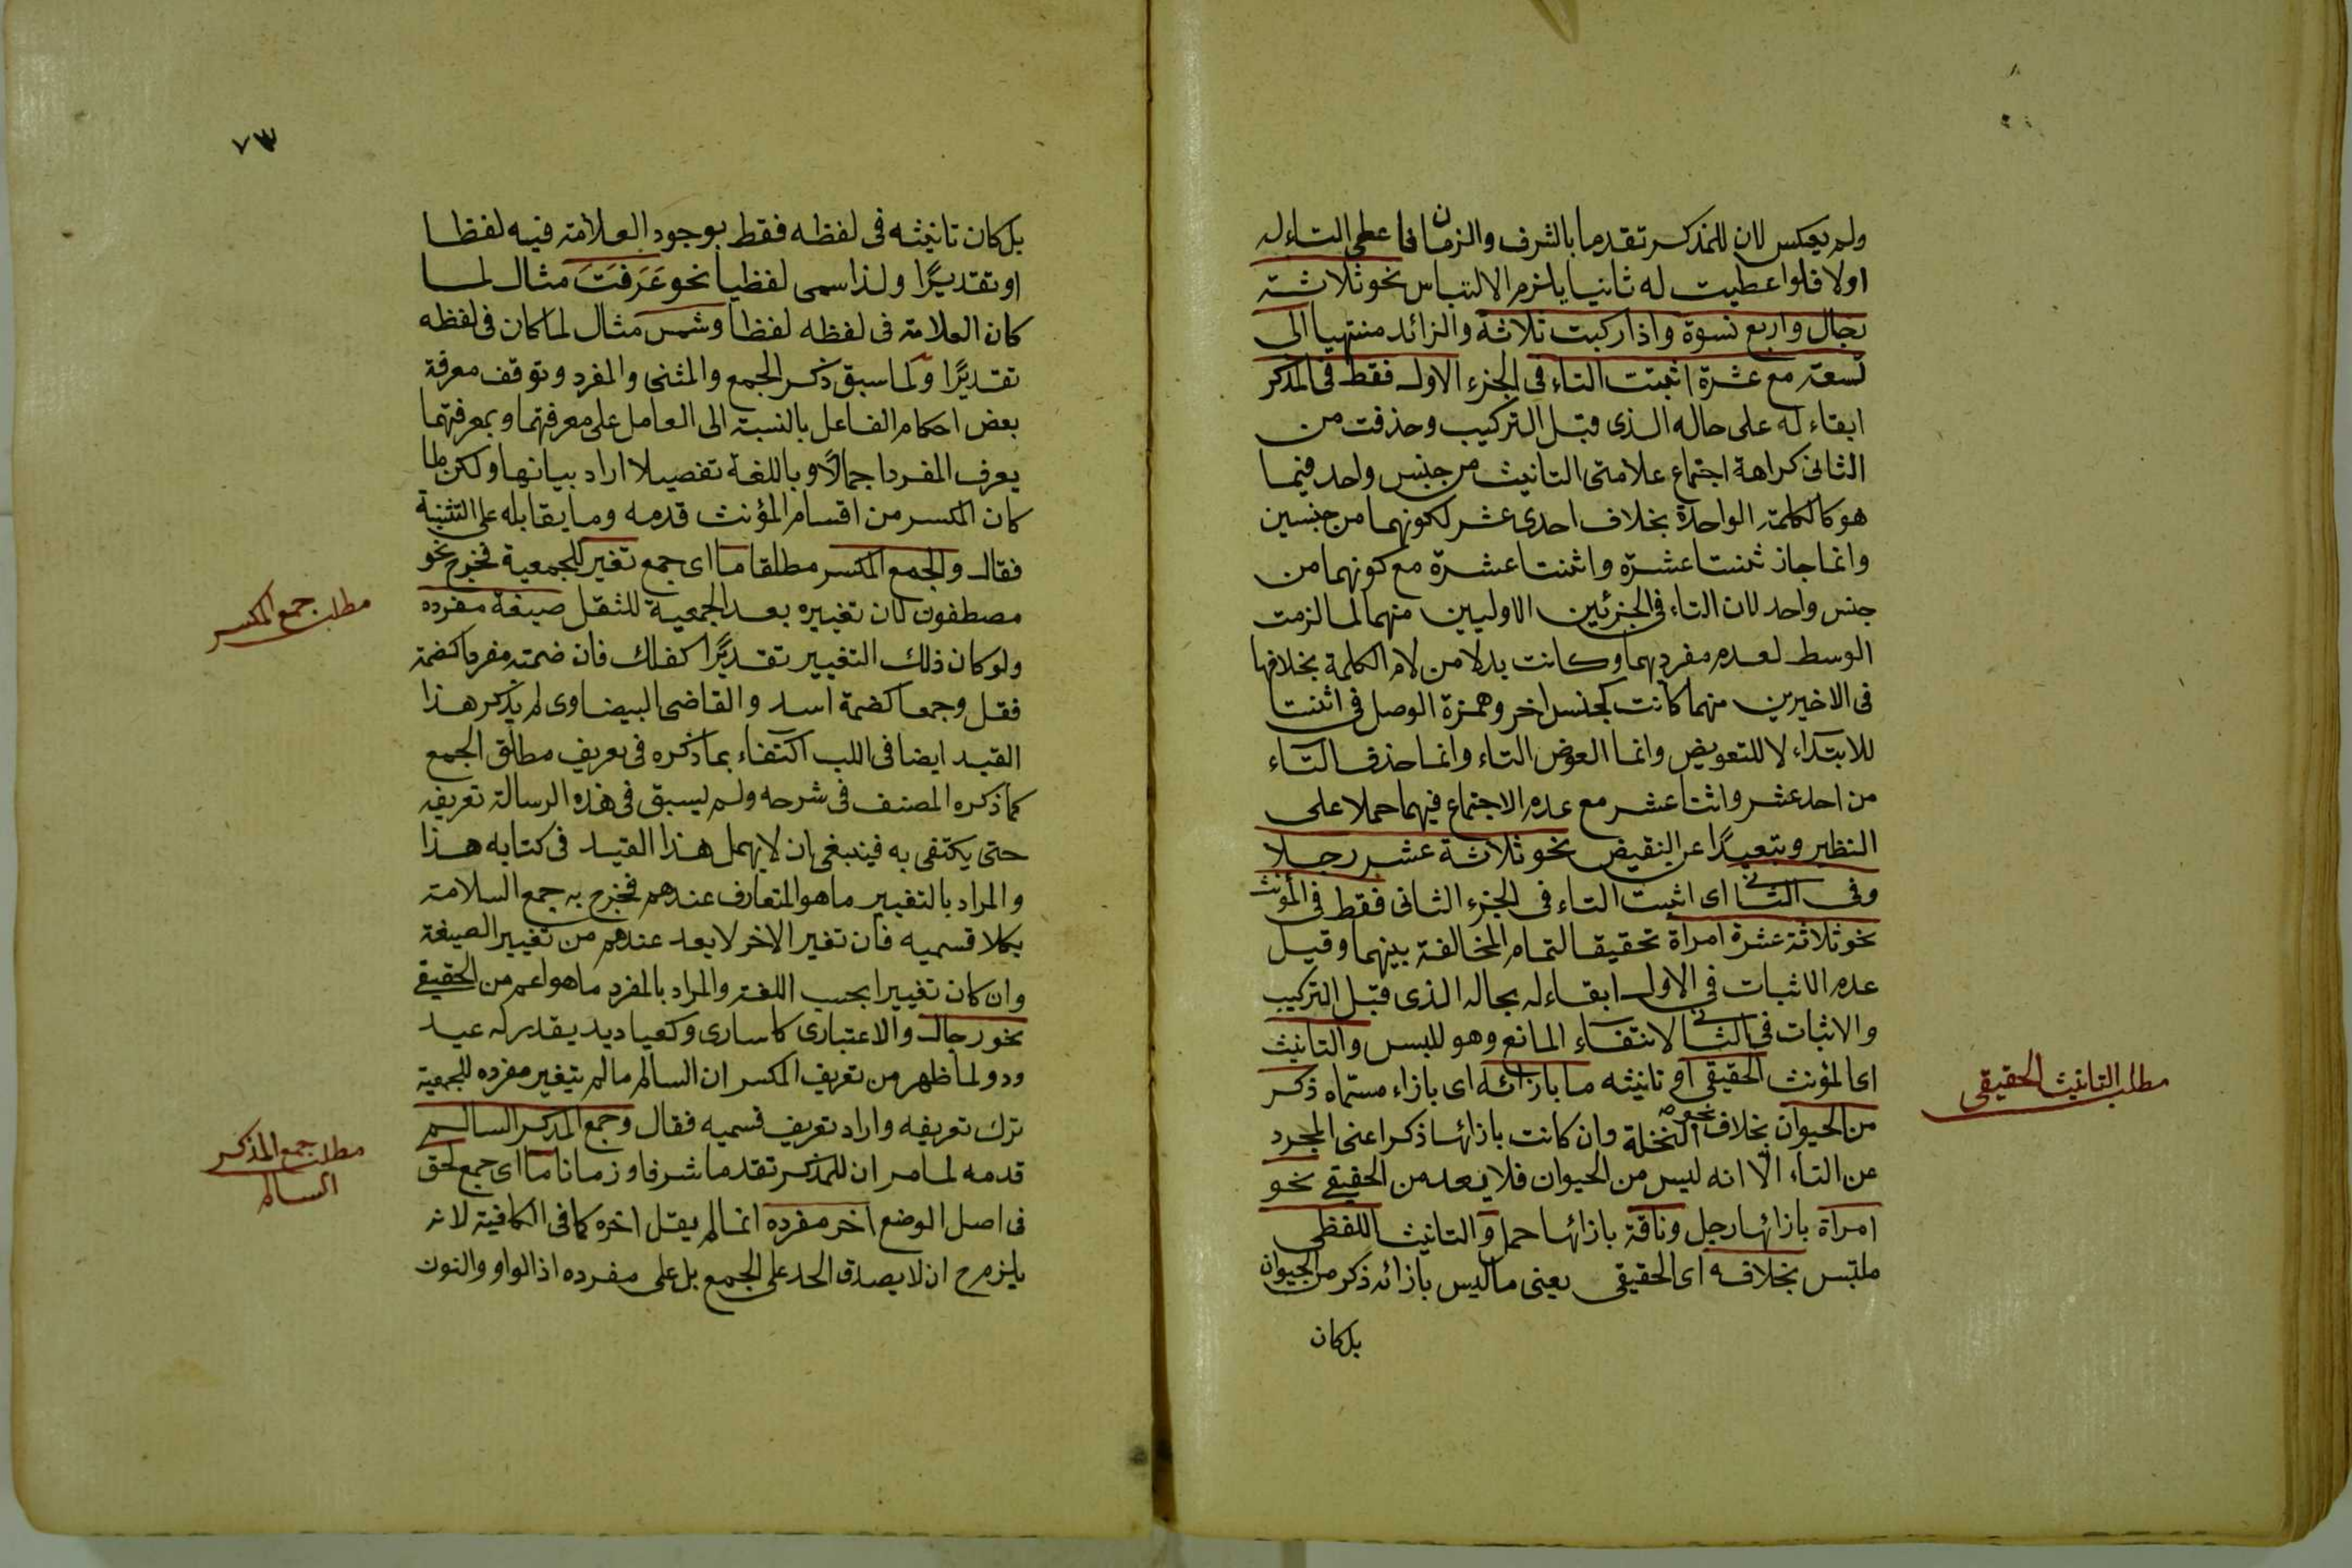 ولم يعكس لان للمذكر تقدما بالشرف والزمان فاعطى التاء له
اولا فلو اعطيت له ثانيا يلزم الالتباس نحو ثلاثة
رجال واربع نسوة واذا ركبت ثلاثة والزائد منتهيا الى
تسعة مع عشرة اثبتت التاء فى الجزء الاول فقط فى المذكر
ابقاء له على حاله الذى قبل التركيب وحذفت من
الثانى كراهة اجتماع علامتى التانيث من جنس واحد فيما
هو كالكلمة الواحدة بخلاف احدى عشر لكونهما من جنسين
وانما جاز ثنتا عشرة واثنتا عشرة مع كونهما من
جنس واحد لان التاء فى الجزئين الاوليين منهما لما لزمت
الوسط لعدم مفردهما وكانت بدلا من لام الكلمة بخلافها
فى الاخيرين منهما كانت كجنس اخر وهمزة الوصل فى اثنتا
للابتداء لا للتعويض وانما العوض التاء وانما حذف التاء
من احد عشر واثنا عشر مع عدم الاجتماع فيهما حملا على
النظير وتبعيدًا عن النقيض نحو ثلاثة عشر رجلا
وفى الثانى اى اثبت التاء فى الجزء الثانى فقط فى المؤنث
نحو ثلاثة عشرة امرأة تحقيقا لتمام المخالفة بينهما وقيل
عدم الاثبات فى الاول ابقاء له بحاله الذى قبل التركيب
والاثبات فى الثانى لانتفاء المانع وهو للبس والتانيث
اى المؤنث الحقيقى اى تانيثه ما بازائه اى بازاء مسماه ذكر
من الحيوان بخلاف نحو النخلة وان كانت بازائها ذكر اعنى المجرد
عن التاء الا انه ليس من الحيوان فلا يعد من الحقيقى نحو
امراة بازائها رجل وناقة بازائها جمل والتانيث اللفظى
ملتبس بخلافه اى الحقيقى يعنى ما ليس بازائه ذكر من الحيوان
بل كان
مطلب التانيث الحقيقى
٧٣
بل كان تانيثه فى لفظه فقط بوجود العلامة فيه لفظا
او تقديرًا ولذا سمى لفظيا نحو عَرَفَتَ مثال لما
كان العلامة فى لفظه لفظا وشمس مثال لما كان فى لفظه
تقديرًا ولما سبق ذكر الجمع والمثنى والمفرد وتوقف معرفة
بعض احكام الفاعل بالنسبة الى العامل على معرفتهما وبمعرفتهما
يعرف المفرد اجمالًا وباللغة تفصيلا اراد بيانها ولكن لما
كان المكسر من اقسام المؤنث قدمه وما يقابله على التثنية
فقال والجمع المكسر مطلقا ما اى جمع تغير للجمعية فخرج نحو
مصطفون لان تغييره بعد الجمعية للثقل صيغة مفرده
ولو كان ذلك التغيير تقديرًا كفلك فان ضمته مفردا كضمة
فقل وجمعا كضمة اسد والقاضى البيضاوى لم يذكر هذا
القيد ايضا فى اللب اكتفاء بما ذكره فى تعريف مطلق الجمع
كما ذكره المصنف فى شرحه ولم يسبق فى هذه الرسالة تعريفه
حتى يكتفى به فينبغى ان لا يهمل هذا القيد فى كتابه هذا
والمراد بالتغيير ما هو المتعارف عندهم فخرج به جمع السلامة
بكلا قسميه فان تغير الاخر لا يعد عندهم من تغيير الصيغة
وان كان تغييرا بحسب اللغة والمراد بالمفرد ما هو اعم من الحقيقى
نحو رجال والاعتبارى كاسارى وكعباديد يقدر له عبد
ودو ولما ظهر من تعريف المكسر ان السالم ما لم يتغير مفرده للجمعية
ترك تعريفه واراد تعريف قسميه فقال وجمع المذكر السالم
قدمه لما مر ان للمذكر تقدما شرفا وزمانا ما اى جمع لحق
فى اصل الوضع اخر مفرده انما لم يقل اخره كما فى الكافية لانه
يلزم ح ان لا يصدق الحد على الجمع بل على مفرده اذ الواو والنون
مطلب جمع المكسر
مطلب جمع المذكر
السالم